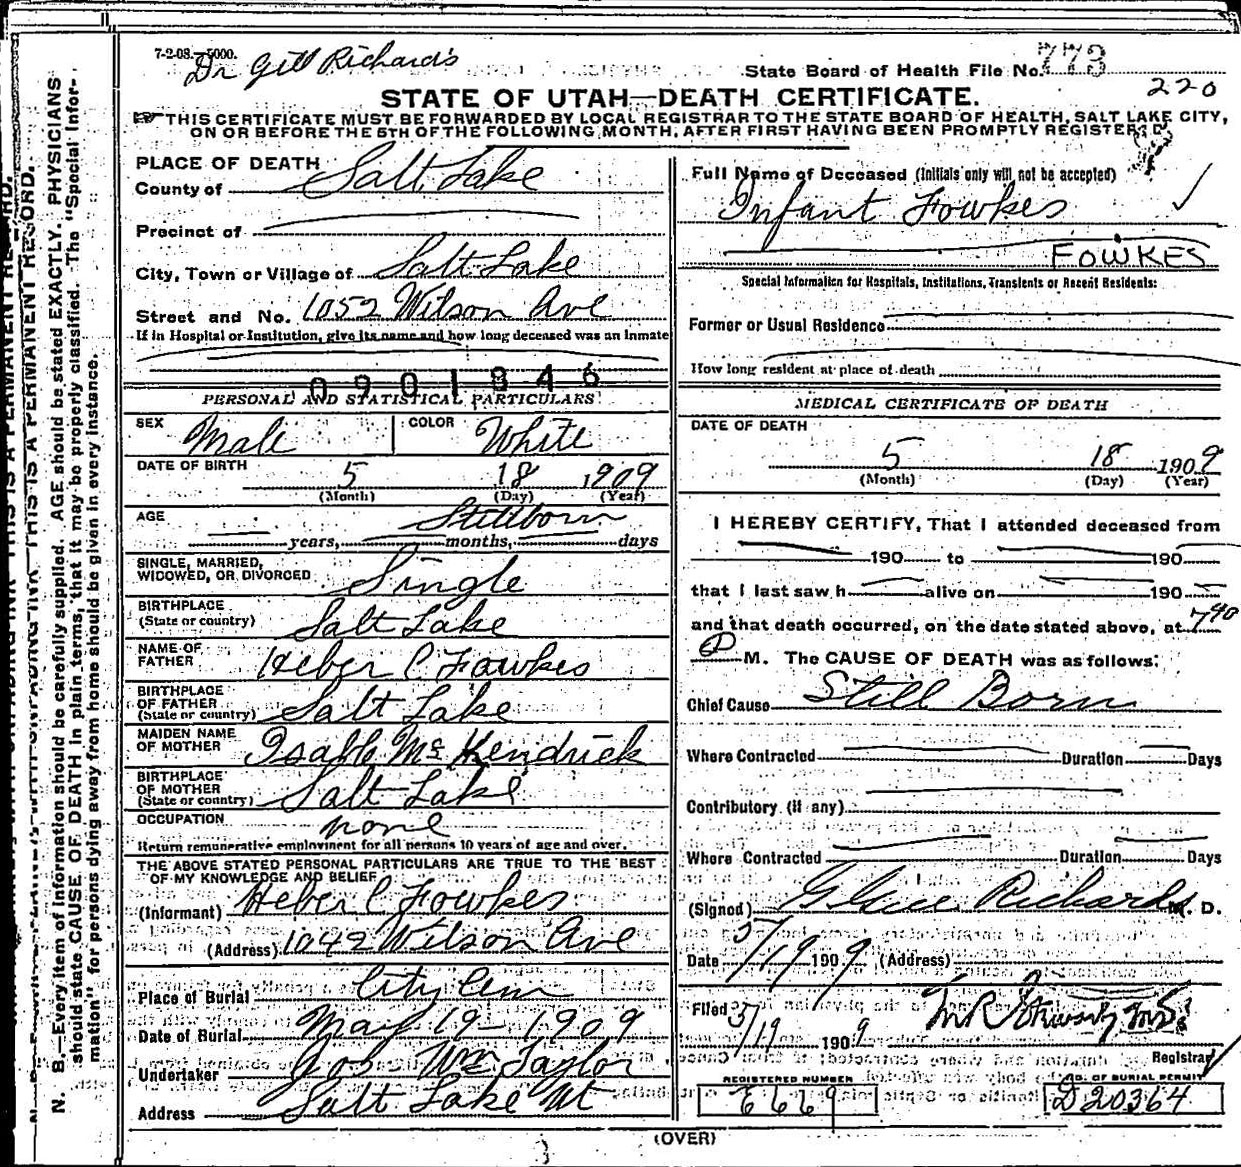 7-2-08.—5000.
Dr Gill Richards
State Board of Health File No. 773
220
STATE OF UTAH—DEATH CERTIFICATE.
THIS CERTIFICATE MUST BE FORWARDED BY LOCAL REGISTRAR TO THE STATE BOARD OF HEALTH, SALT LAKE CITY,
ON OR BEFORE THE 5TH OF THE FOLLOWING MONTH, AFTER FIRST HAVING BEEN PROMPTLY REGISTERED.
PLACE OF DEATH
County of Salt Lake
Precinct of
City, Town or Village of Salt Lake
Street and No. 1052 Wilson Ave
If in Hospital or Institution, give its name and how long deceased was an inmate
0901846
PERSONAL AND STATISTICAL PARTICULARS
SEX Male COLOR White
DATE OF BIRTH 5 18 1909
(Month) (Day) (Year)
AGE Stillborn
years, months, days
SINGLE, MARRIED,
WIDOWED, OR DIVORCED Single
BIRTHPLACE
(State or country) Salt Lake
NAME OF
FATHER Heber C Fowkes
BIRTHPLACE
OF FATHER
(State or country) Salt Lake
MAIDEN NAME
OF MOTHER McKendrick
BIRTHPLACE
OF MOTHER
(State or country) Salt Lake
OCCUPATION none
Return remunerative employment for all persons 10 years of age and over.
THE ABOVE STATED PERSONAL PARTICULARS ARE TRUE TO THE BEST
OF MY KNOWLEDGE AND BELIEF
(Informant) Heber C Fowkes
(Address) 1042 Wilson Ave
Place of Burial City Cem
Date of Burial May 19 - 1909
Undertaker Jos Wm Taylor
Address Salt Lake Ut
Full Name of Deceased (Initials only will not be accepted)
Infant Fowkes
FOWKES
Special Information for Hospitals, Institutions, Transients or Recent Residents:
Former or Usual Residence
How long resident at place of death
MEDICAL CERTIFICATE OF DEATH
DATE OF DEATH
5 18 1909
(Month) (Day) (Year)
I HEREBY CERTIFY, That I attended deceased from
190 to 190
that I last saw h alive on 190
and that death occurred, on the date stated above, at 7 40
P M. The CAUSE OF DEATH was as follows:
Chief Cause Still Born
Where Contracted Duration Days
Contributory (if any)
Where Contracted Duration Days
(Signed) Richards M. D.
Date 5/19 1909 (Address)
Filed 5/19 1909
Registrar
REGISTERED NUMBER
E669
NO. OF BURIAL PERMIT
D20364
(OVER)
N. B.—Every item of information should be carefully supplied. AGE should be stated EXACTLY. PHYSICIANS
should state CAUSE OF DEATH in plain terms, that it may be properly classified. The "Special Infor-
mation" for persons dying away from home should be given in every instance.
THIS IS A PERMANENT RECORD.